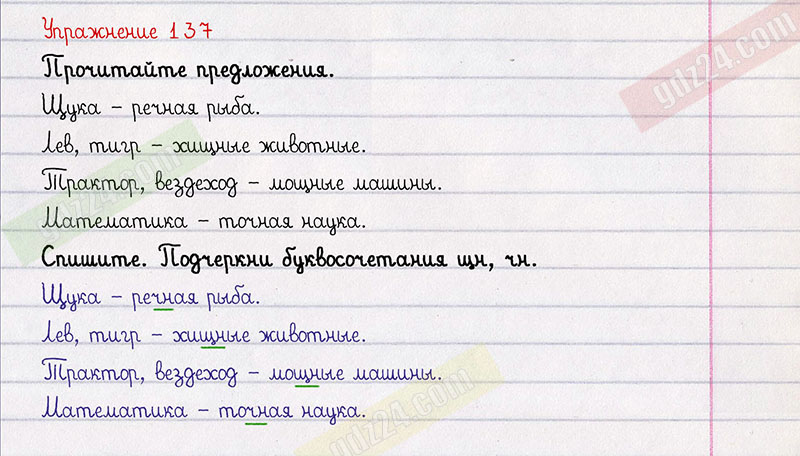 Упражнение 137
Прочитайте предложения.
Щука – речная рыба.
Лев, тигр – хищные животные.
Трактор, вездеход – мощные машины.
Математика – точная наука.
Спишите. Подчеркни буквосочетания щн, чн.
Щука – речная рыба.
Лев, тигр – хищные животные.
Трактор, вездеход – мощные машины.
Математика – точная наука.
gdz24.com
gdz24.com
gdz24.com